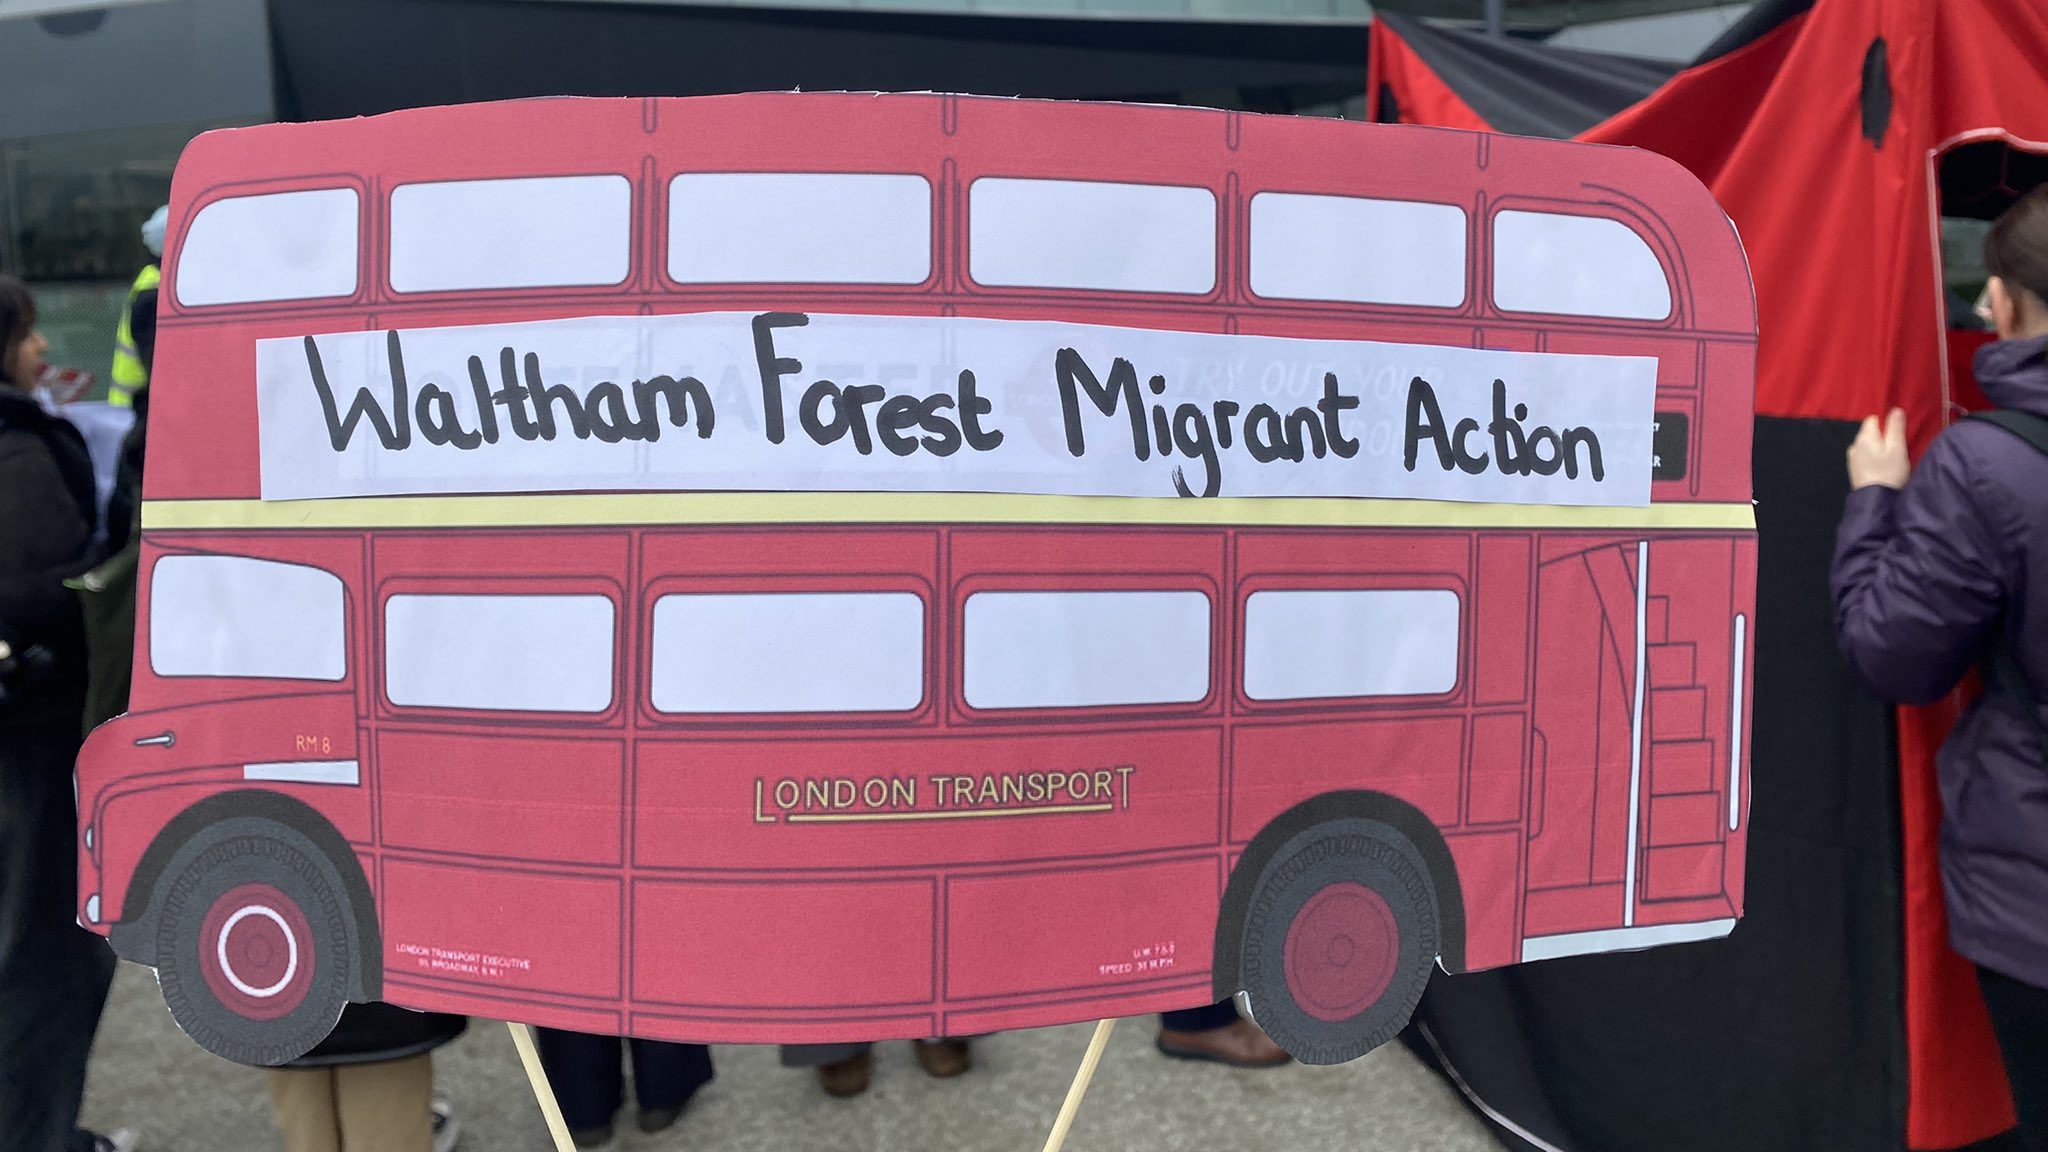 Waltham Forest Migrant Action
RM 8
LONDON TRANSPORT
LONDON TRANSPORT EXECUTIVE
55, BROADWAY, S.W.1
SPEED 30 M.P.H.